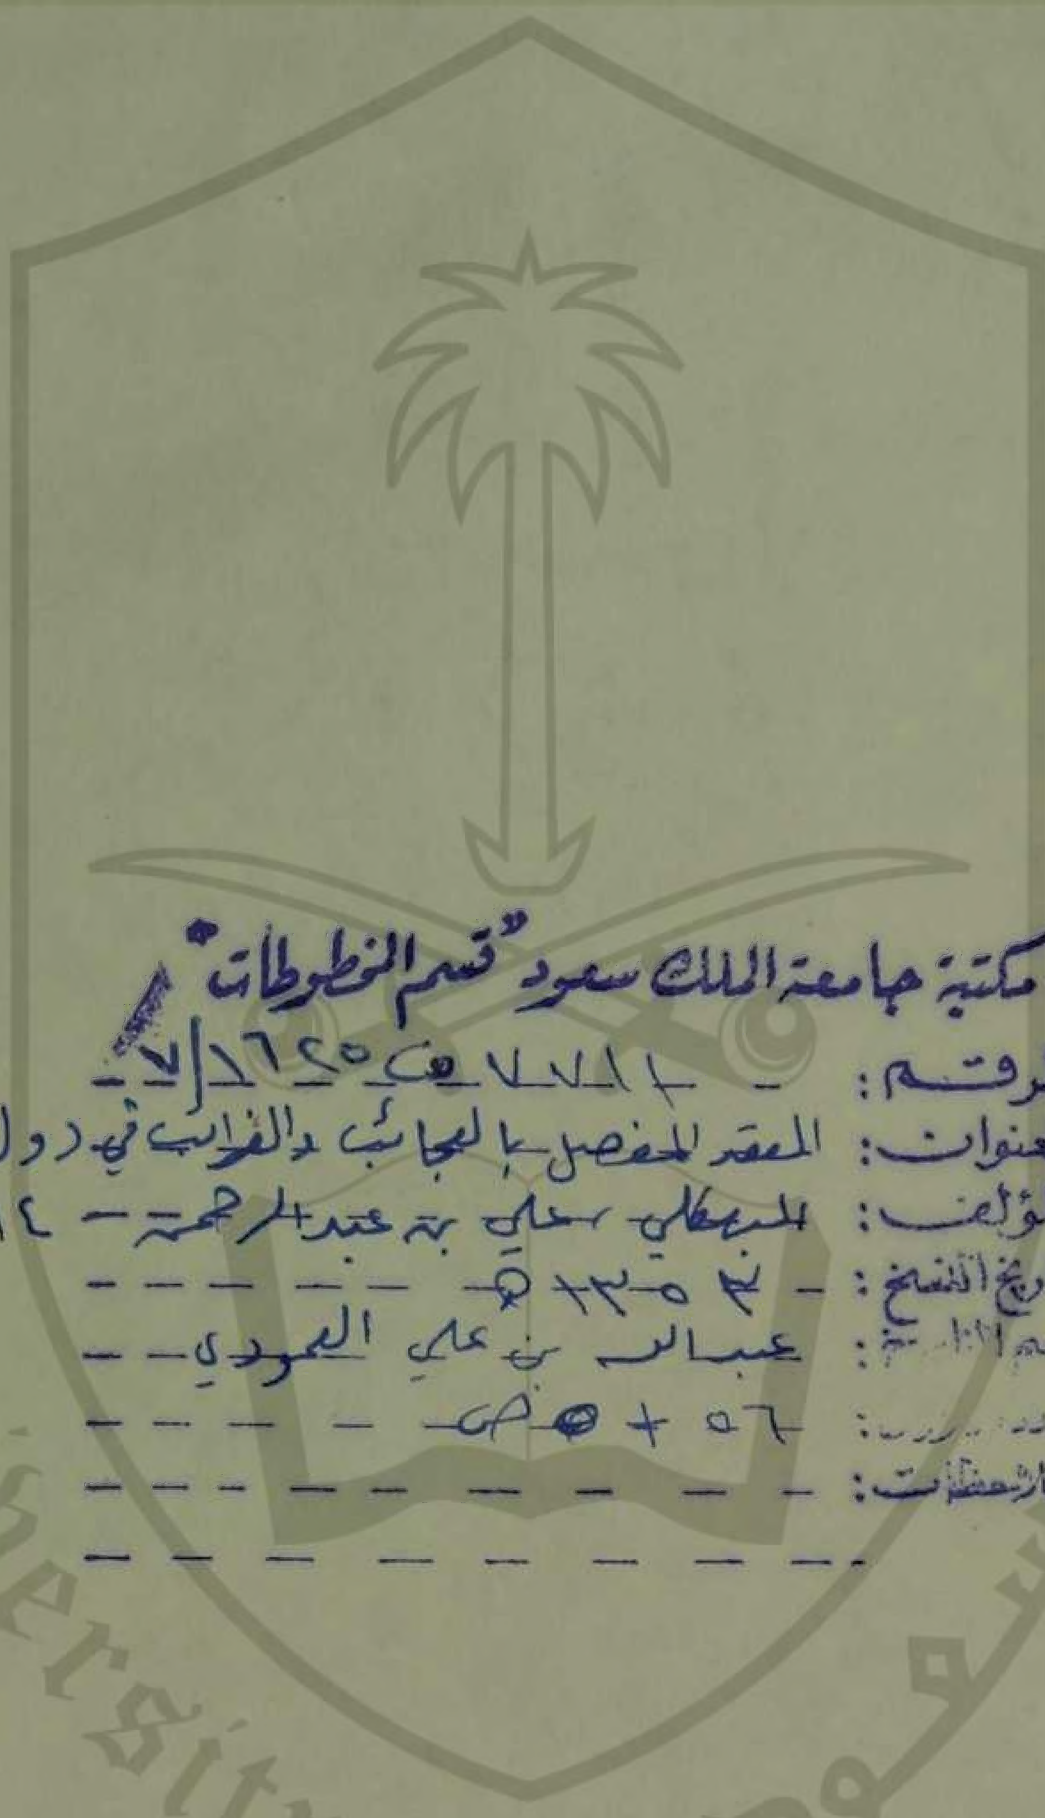 مكتبة جامعة الملك سعود "قسم المخطوطات"
الرقم: ٧٧١١ ف ١٦٢٥/٧
العنوان: العقد المفصل بالعجائب والغرائب في دول
المؤلف: البهكلي، علي بن عبد الرحمن - ١٤
تاريخ النسخ: ١٣٥٣ هـ
اسم الناسخ: عبدالله بن علي العمودي
٥٦ + ص
ملاحظات:
versit
سعو